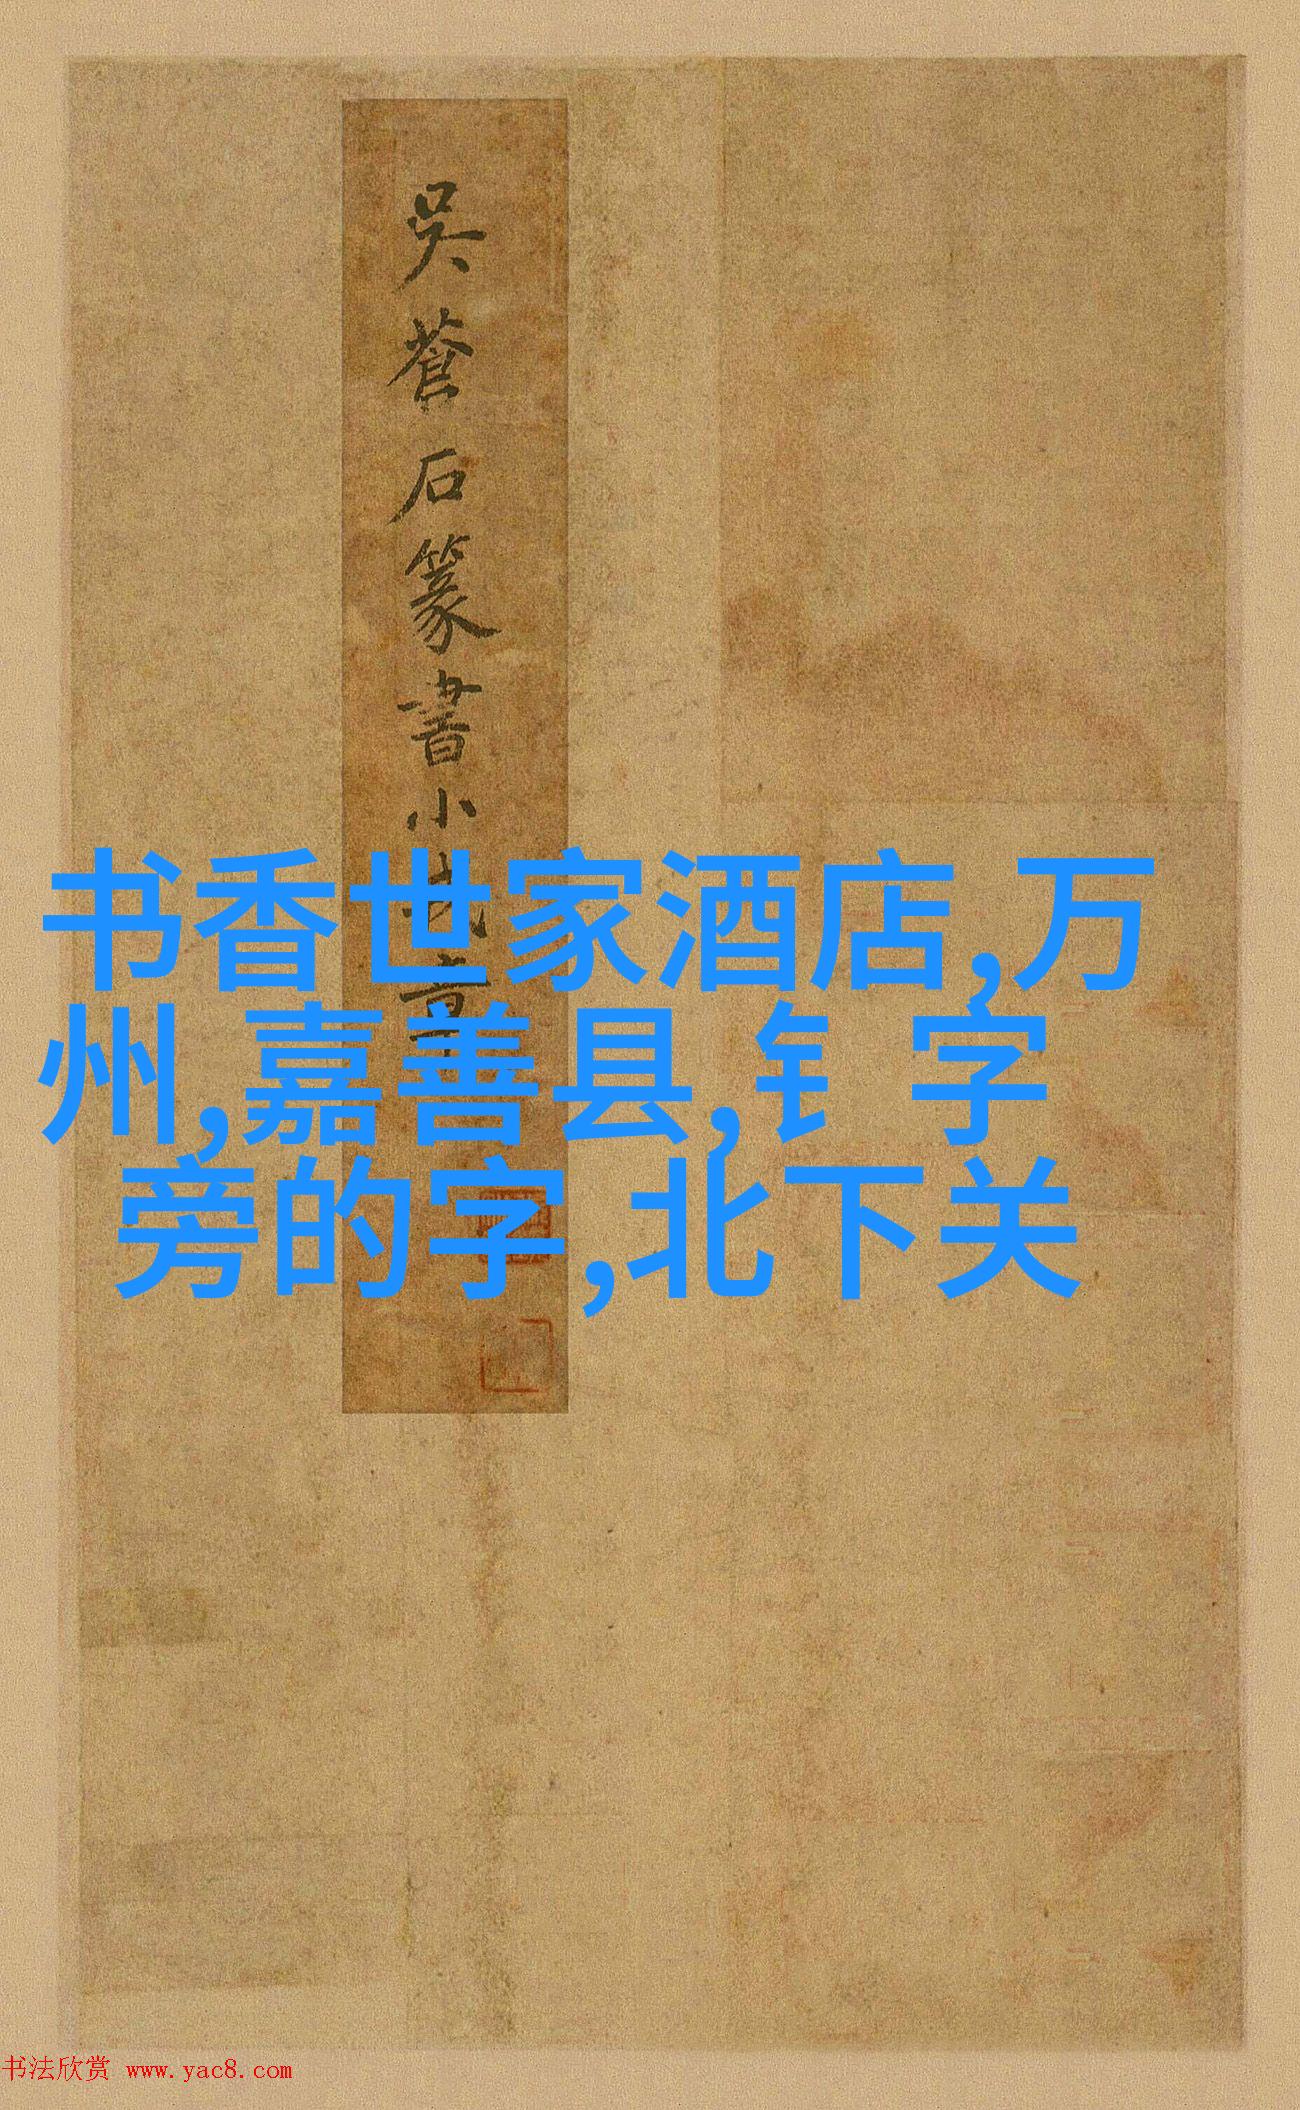 吳蒼石篆書小戎章
书香世家酒店,万
州,嘉善县,钅字
旁的字,北下关
书法欣赏 www.yac8.com